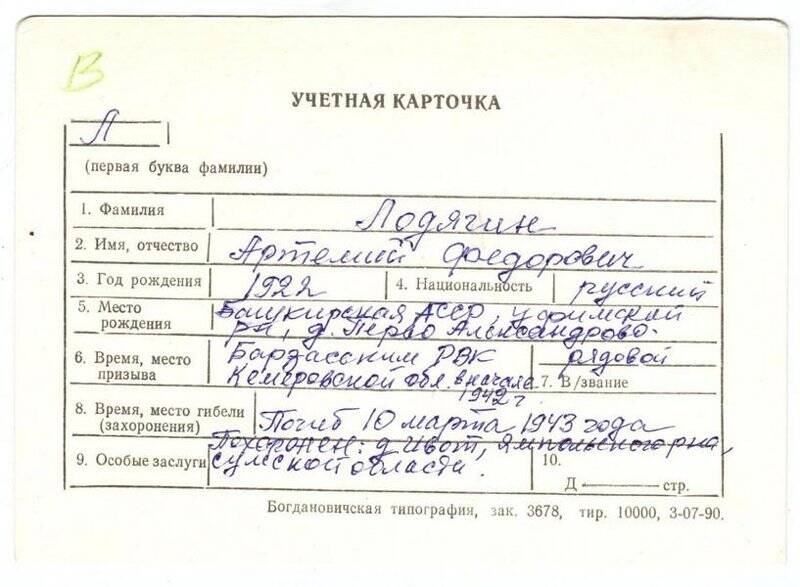 В
УЧЕТНАЯ КАРТОЧКА
Л
(первая буква фамилии)
1. Фамилия Лодягин
2. Имя, отчество Артемий Федорович
3. Год рождения 1922 4. Национальность русский
5. Место Башкирская АССР, уфимской
рождения р-н, д. Перво Александрово.
6. Время, место Барзасским РВК рядовой
призыва Кемеровской обл. в начала 7. В/звание
1942 г
8. Время, место гибели Погиб 10 марта 1943 года
(захоронения)
Похоронен: д Ивот, Ямпольского р-на,
9. Особые заслуги сумской области. 10.
Д стр.
Богдановичская типография, зак. 3678, тир. 10000, 3-07-90.